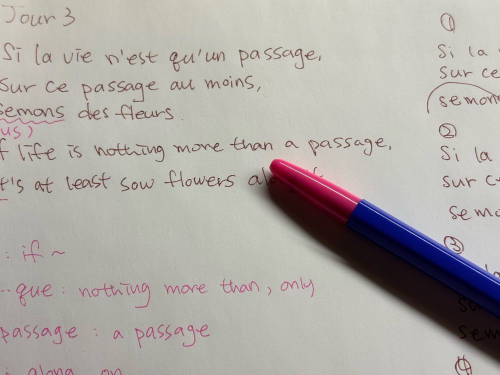 Jour 3
Si la vie n'est qu'un passage,
Sur ce passage au moins,
semons des fleurs.
us)
f life is nothing more than a passage,
t's at least sow flowers
: if ~
que : nothing more than, only
passage : a passage
: along, on
①
Si la
sur ce
semons
②
Si la
sur ce
semo
③
④